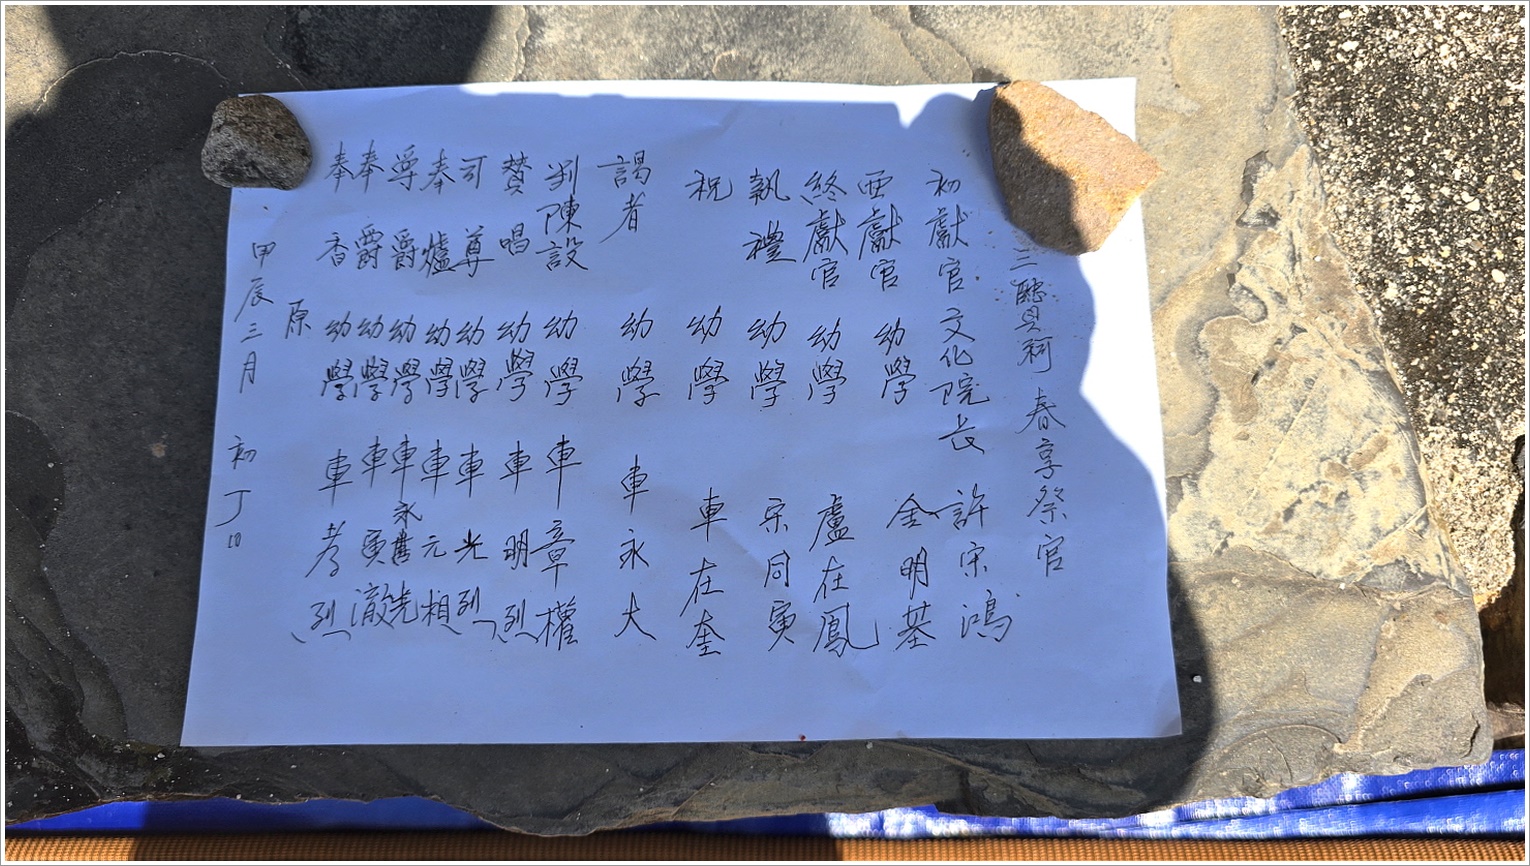 三賢祠 春享祭官
初獻官 文化院長 許宋鴻
亞獻官 幼學 金明基
終獻官 幼學 盧在鳳
執禮 幼學 宋同寅
祝 幼學 車在奎
謁者 幼學 車永大
判陳設 幼學 車章權
贊唱 幼學 車明烈
司尊 幼學 車光烈
奉爐 幼學 車元相
尊爵 幼學 車永舊先
奉爵 幼學 車寅澈
奉香 幼學 車孝烈
原
甲辰三月 初丁日